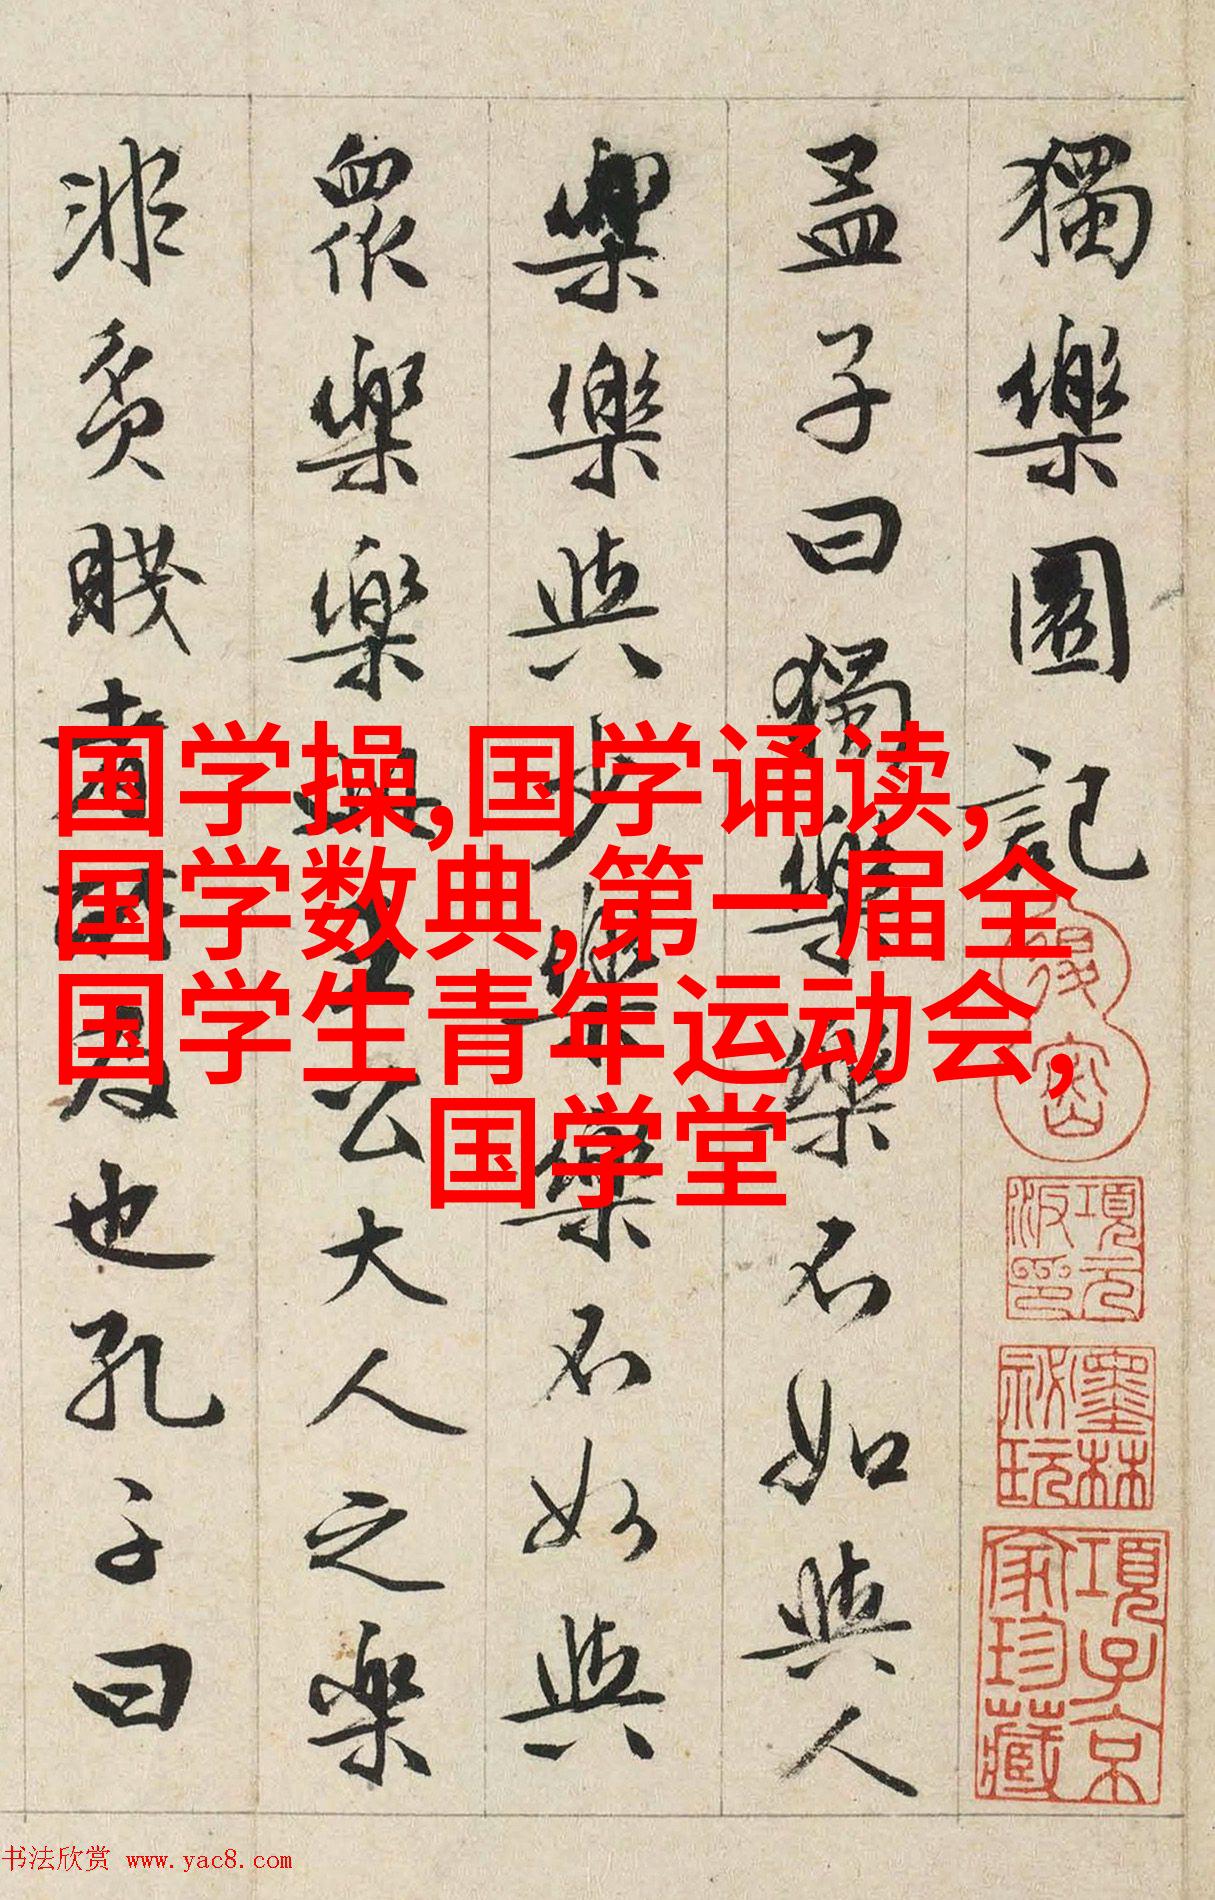 獨樂園記
孟子曰獨樂樂不如與人
樂樂與少樂樂不如與
衆樂樂王公大人之樂
非貧賤者所及也孔子曰
国学操,国学诵读,
国学数典,第一届全
国学生青年运动会,
国学堂
項元汴印
墨林秘玩
項子京家珍藏
书法欣赏 www.yac8.com